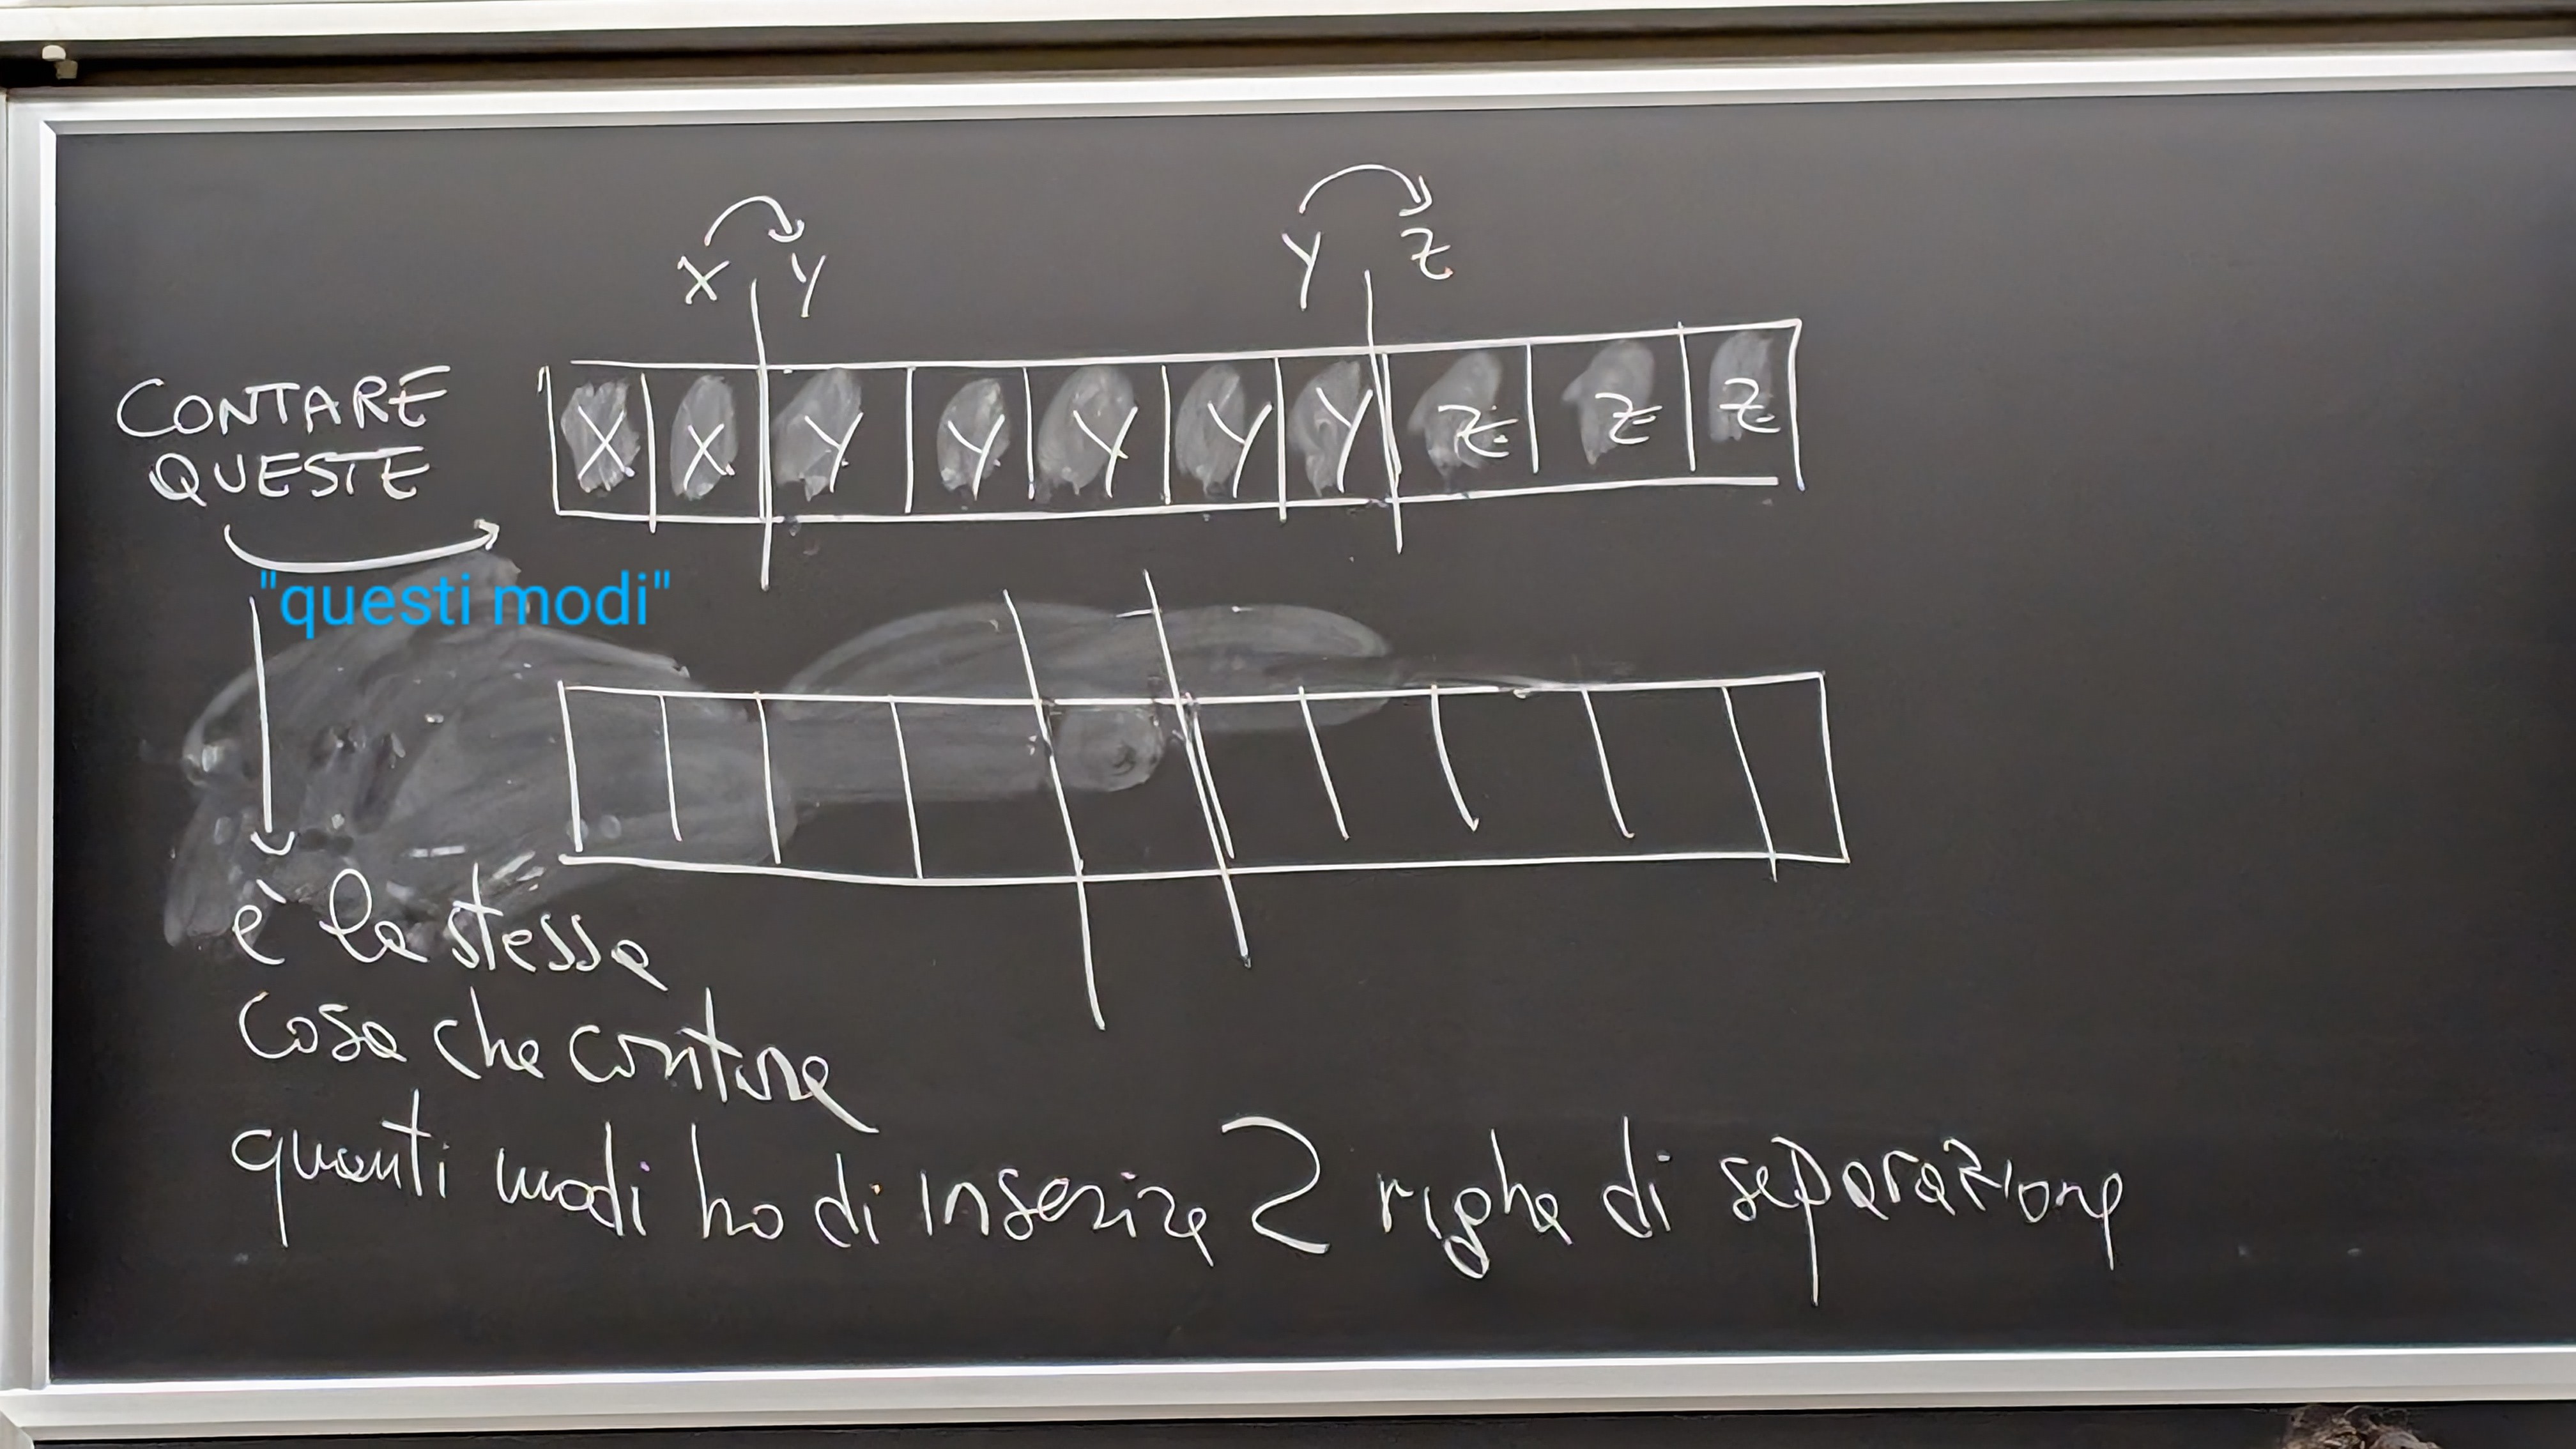 X Y Y Z
CONTARE
QUESTE
X X Y Y Y Y Y Z Z Z
"questi modi"
è la stessa
cosa che contare
quanti modi ho di inserire 2 righe di separazione